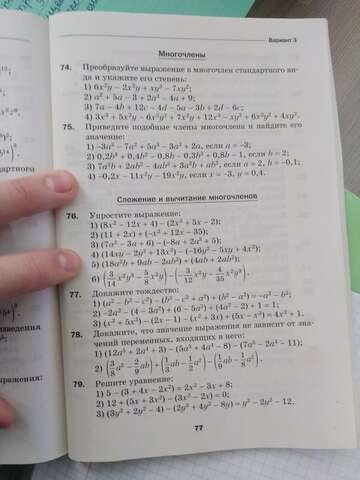 Вариант 3
Многочлены
74. Преобразуйте выражение в многочлен стандартного ви-
да и укажите его степень:
1) 6x²y − 2x²y + xy² − 7xy²;
2) a² + 5a − 3 + 2a² − 4a + 9;
3) 7a − 4b + 12c − 4d − 5a − 3b + 2d − 6c;
4) 3x³ + 5x²y − 6x²y² + 7x²y + 12x³ − xy² + 6x²y² + 4xy².
75. Приведите подобные члены многочлена и найдите его
значение:
1) −3a² − 7a² + 5a³ − 3a² + 2a, если a = −3;
2) 0,2b³ + 0,4b² − 0,8b − 0,3b² + 0,8b − 1, если b = 2;
3) 7a²b + 2ab² − 4ab² + 3a²b + ab², если a = 2, b = −0,1;
4) −0,2x − 11x²y − 19x²y, если x = −3, y = 0,4.
Сложение и вычитание многочленов
76. Упростите выражение:
1) (8x² − 12x + 4) − (2x² + 3x − 2);
2) (11 + 2x) + (−x² + 12x − 35);
3) (7a² − 3a + 6) − (−8a + 2a² + 5);
4) (14xy − 2y² + 13x²) − (−16y² − 5xy + 4x²);
5) (18a²b + 9ab − 2ab²) + (4ab + 2ab²);
77. Докажите тождество:
1) (a² − b² − x²) − (b² − c² + a²) + (b² − a²) = −a² − b²;
2) −2a² − (4 − 3a²) + (6 − 5a²) + (4a² − 2) + 1 = 1;
3) (x² + 5x²) − (2x − 1) − (x² + 3x) + (5x − x²) = 4x² + 1.
78. Докажите, что значение выражения не зависит от зна-
чений переменных, входящих в него:
1) (12a⁵ + 2a⁴ + 3) − (5a⁵ + 4a⁴ − 8) − (7a⁵ − 2a⁴ − 11);
79. Решите уравнение:
1) 5 − (3 + 4x − 2x²) = 2x² − 3x + 8;
2) 12 + (5x + 3x²) − (3x² − 2x) = 0;
3) (3y³ + 2y² − 4) − (2y³ + 4y² − 8y) = y³ − 2y² − 12.
77